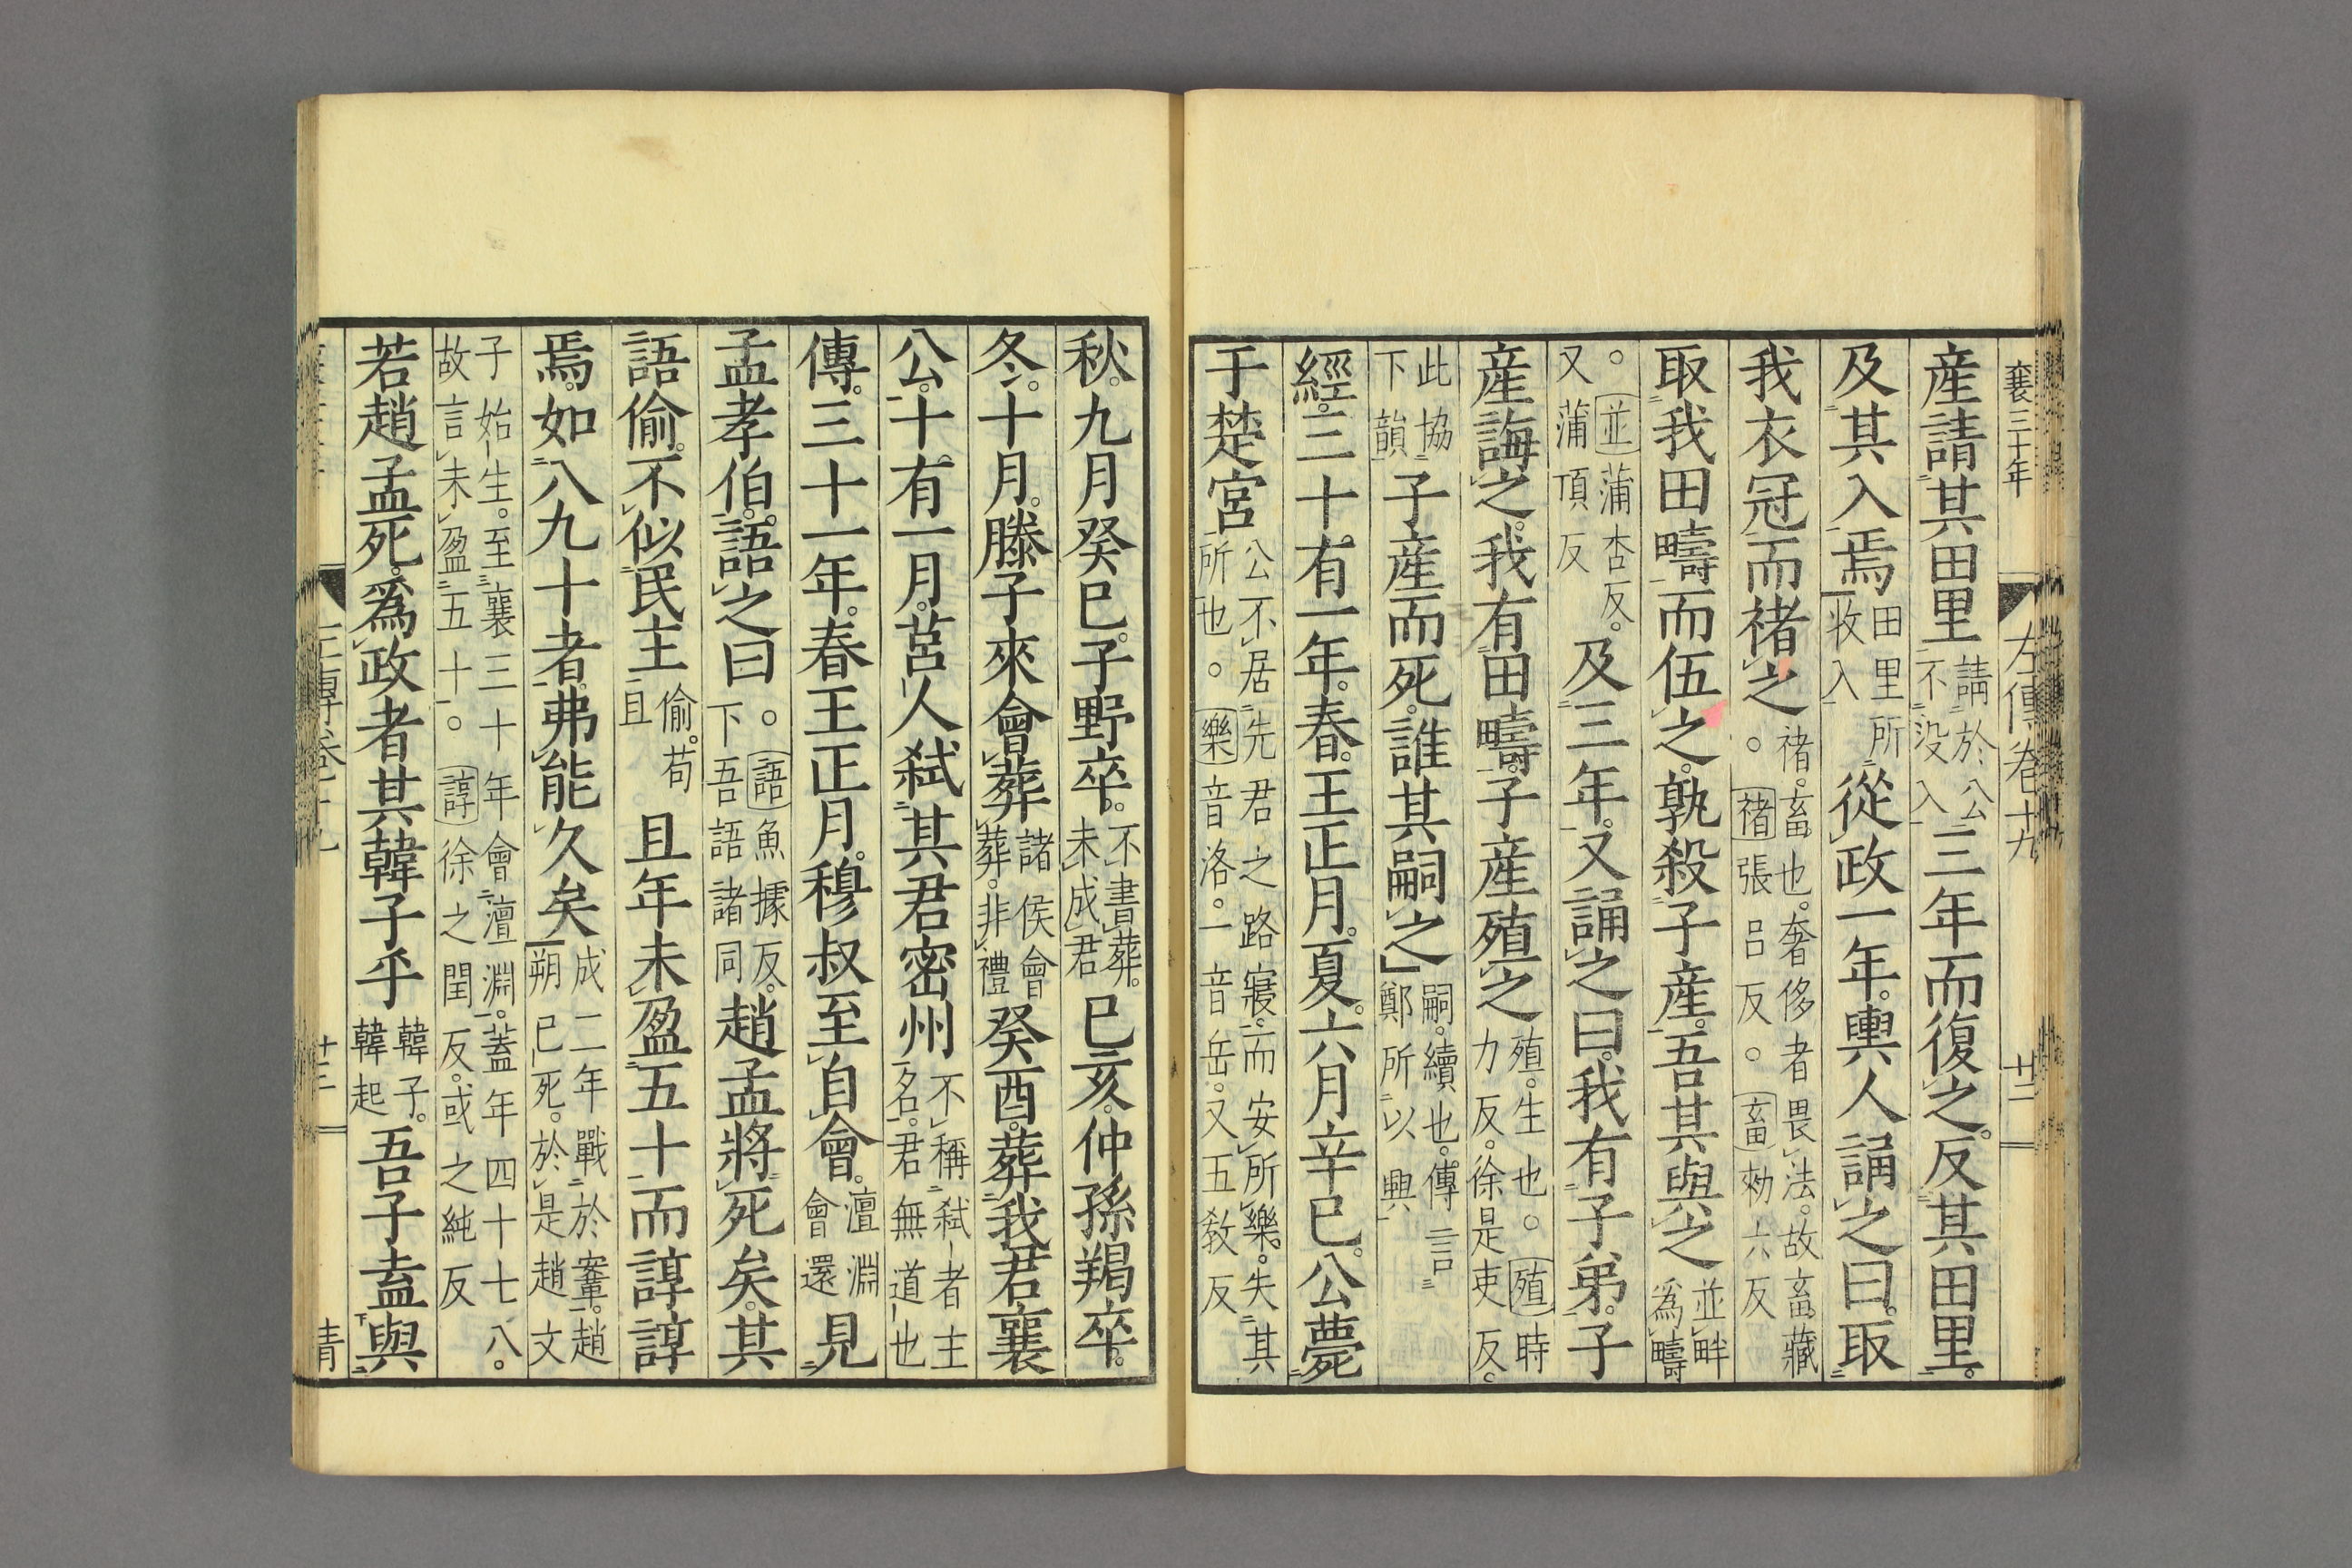 襄三十年 左傳卷十九 廿二
産請其田里請於公不没入三年而復之反其田里
及其入焉田里所收入從政一年輿人誦之曰取
我衣冠而褚之褚畜也奢侈者畏法故畜藏。褚張呂反。畜勑六反
取我田疇而伍之孰殺子産吾其與之並畔爲疇
。並蒲杏反又蒲頂反及三年又誦之曰我有子弟子
産誨之我有田疇子産殖之殖生也。殖時力反徐是吏反
此協下韻子産而死誰其嗣之嗣續也傳言鄭所以興
經三十有一年春王正月夏六月辛巳公薨
于楚宮公不居先君之路寢而安所樂失其所也。樂音洛一音岳又五敎反
秋九月癸巳子野卒不書葬未成君己亥仲孫羯卒
冬十月滕子來會葬諸侯會葬非禮癸酉葬我君襄
公十有一月莒人弑其君密州不稱弑者主名君無道也
傳三十一年春王正月穆叔至自會澶淵會還見
孟孝伯語之曰。語魚據反下吾語諸同趙孟將死矣其
語偷不似民主偷苟且且年未盈五十而諄諄
焉如八九十者弗能久矣成二年戰於鞌趙朔已死於是趙文
子始生至襄三十年會澶淵蓋年四十七八故言未盈五十。諄徐之閏反或之純反
若趙孟死爲政者其韓子乎韓子韓起吾子盍與